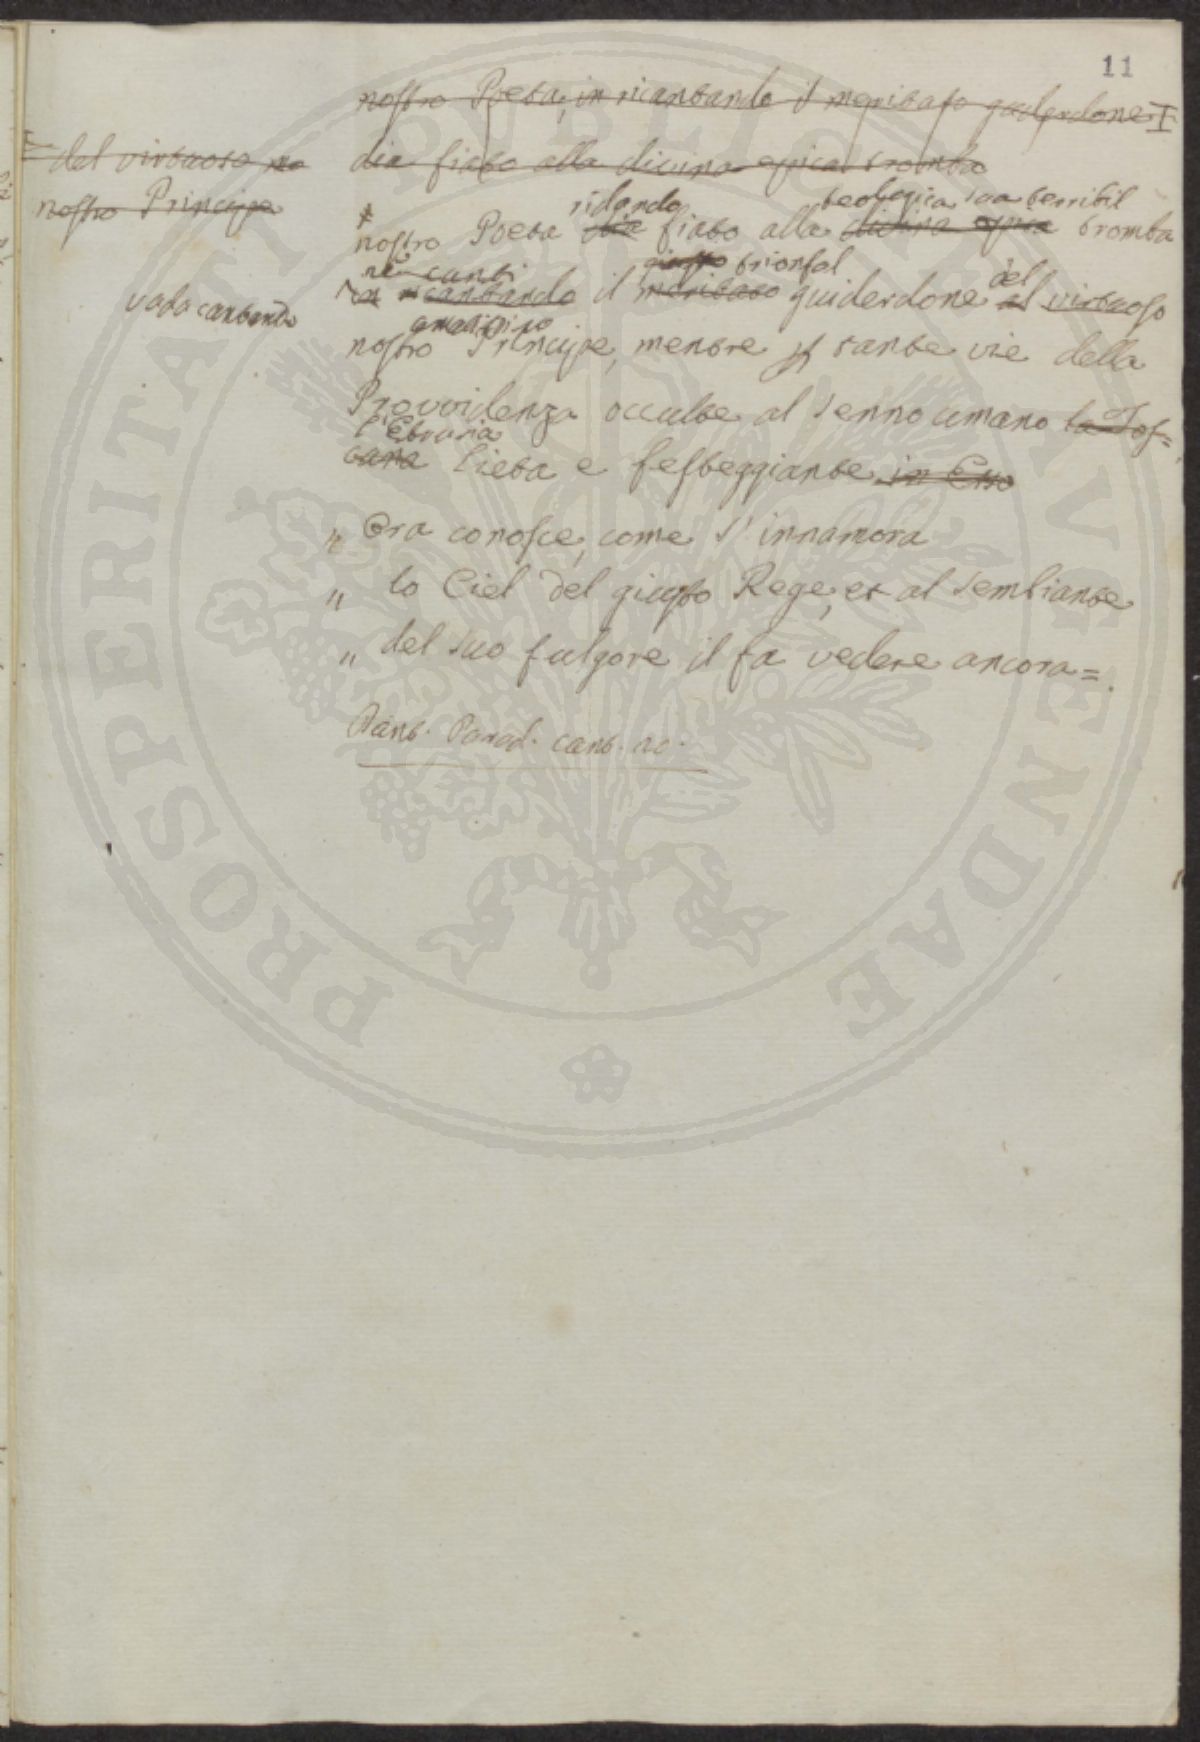 11
nostro Poeta, in ricantando il meritato guiderdone
del virtuoso no
nostro Principe
dia fiato alla divina epica tromba
ridando teologica sua terribil
nostro Poeta dia fiato alla divina epica tromba
canti giusto trionfal del
vada cantando
ricantando il meritato guiderdone al virtuoso
nostro Principe, mentre per sante vie della
Provvidenza occulte al senno umano la Tos=
l'Etruria
cana lieta e festeggiante in Esso
" Ora conosce, come s'innamora
" lo Ciel del giusto Rege, et al sembiante
" del suo fulgore il fa vedere ancora=.
Dant. Parad. cant. 20.
PROSPERITATI PUBLICAE AUGENDAE